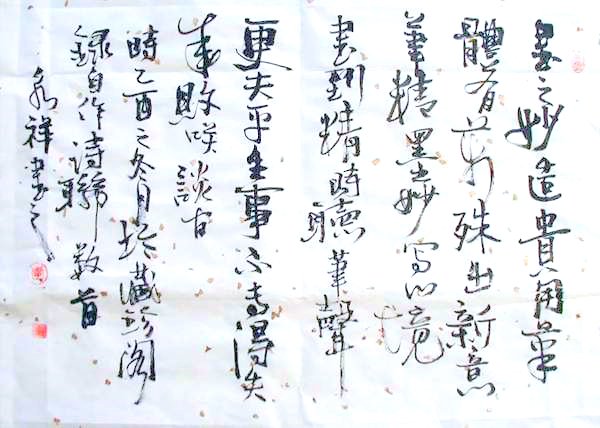 書之妙造貴用筆
體有萬殊出新意
筆精墨妙寫心境
書到精時聽筆聲
更夫平生事不克得失
成敗咲談古
時乙酉之冬月於藏珍閣
錄自作詩聯數首
永祥書之